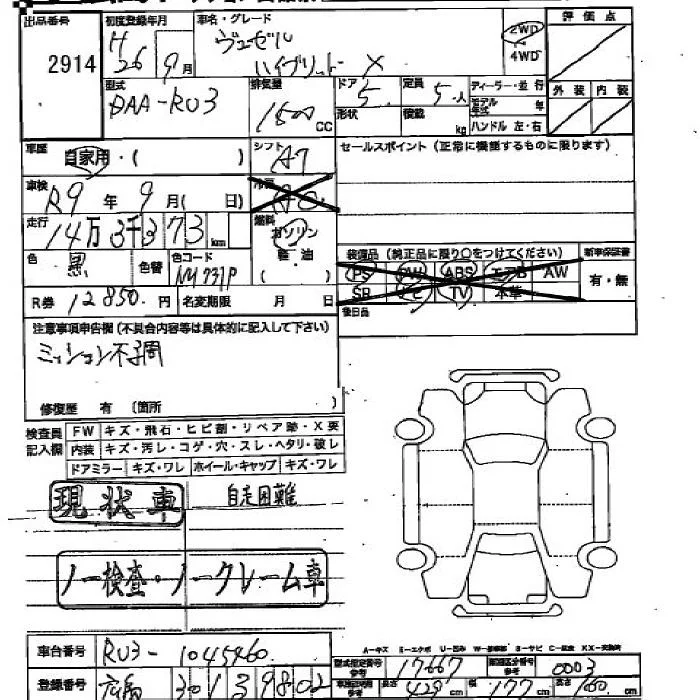 出品番号 初度登録年月 車名・グレード 評価点
2914 H26 9月 ヴェゼル 2WD
ハイブリット X 4WD
型式 排気量 ドア 定員 ディーラー・並行 外装 内装
DAA-RU3 1500CC 5 5人 モデル年式 年
形状 積載 kg ハンドル 左・右
車歴 自家用・( ) シフト AT セールスポイント (正常に機能するものに限ります)
車検 R9年 9月( 日) 冷房 AC
走行 14万3千373km 燃料 ガソリン
軽・油
( )
色 黒 色替 色コード NH731P
装備品 (純正品に限り○をつけてください) 新車保証書
PS PW ABS エアB AW 有・無
SR ナビ TV 本革
R券 12850円 名変期限 月 日 後日品
注意事項申告欄(不具合内容等は具体的に記入して下さい)
ミッション不調
修復歴 有 (箇所
検査員記入欄 FW キズ・飛石・ヒビ割・リペア跡・X要
内装 キズ・汚レ・コゲ・穴・スレ・ヘタリ・破レ
ドアミラー キズ・ワレ ホイール・キャップ キズ・ワレ
現状車 自走困難
ノー検査・ノークレーム車
A-キズ E-エクボ U-凹み
車台番号 RU3-1045960
型式指定番号 参考 17667 類別区分番号 参考 0003
登録番号 広島 301 3 9802
長さ 429cm 幅 177cm 高さ 160cm